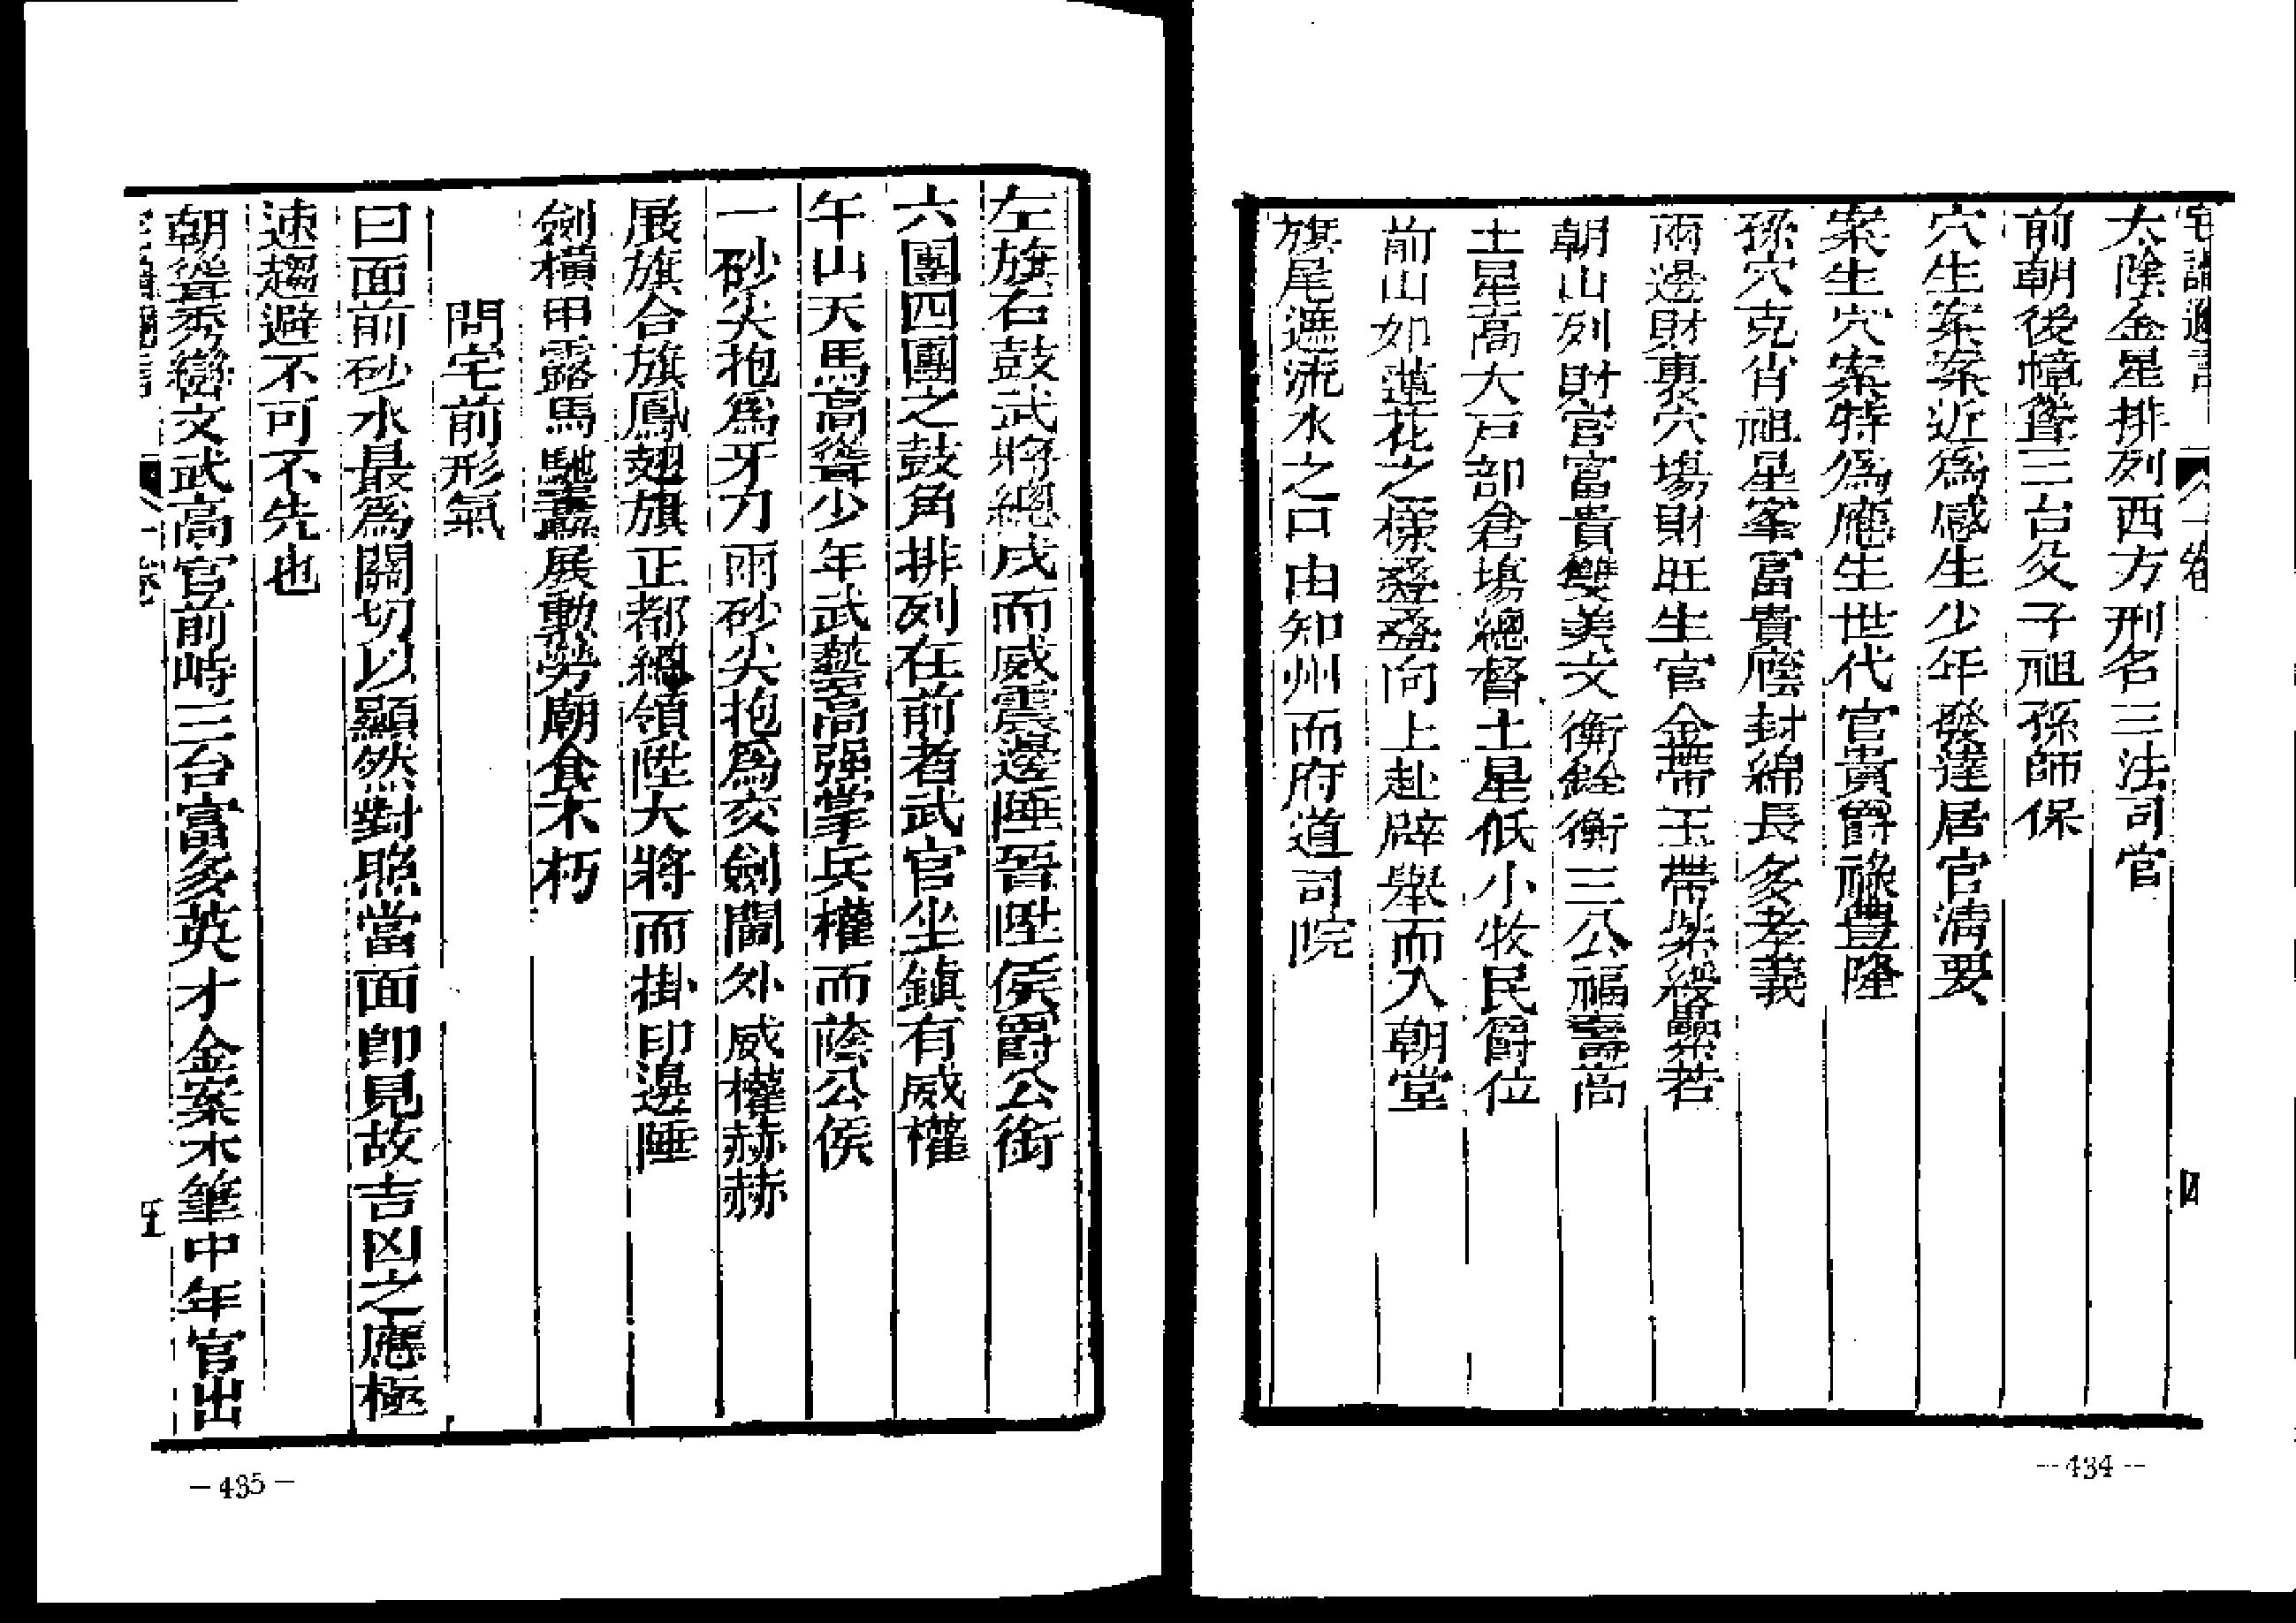 宅譜邇言 一卷 四
太陰金星排列西方刑名三法司官
前朝後幛聳三台父子祖孫師保
穴生案案近為感生少年發達居官清要
案生穴案特為應生世代官貴爵祿豐隆
孫穴克肖祖星峯富貴廕封綿長多孝義
兩邊財裏穴場財旺生官金帶玉帶紫綬纍若
朝山列財官富貴雙美文衡銓衡三公福壽高
土星高大戸部倉塲總督土星低小牧民爵位
前山如蓮花之樣叠叠向上赴辟舉而入朝堂
旗尾遮流水之口由知州而府道司院
—434—
左旗右鼓武將總戎而威震邊陲晉陞侯爵公銜
六團四團之鼓角排列在前者武官坐鎮有威權
午山天馬高聳少年武藝高强掌兵權而蔭公侯
一砂尖抱為牙刀兩砂尖抱爲交劍閫外威權赫赫
展旗合旗鳳翅旗正都綱領陞大將而掛印邊陲
劍橫甲露馬馳纛展動勞廟食不朽
問宅前形氣
曰面前砂水最爲關切以顯然對照當面卽見故吉凶之應極
速趨避不可不先也
朝聳秀巒文武高官前峙三台富多英才金案木筆中年官出
宅譜邇言 一卷 五
—435—